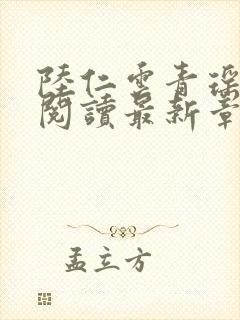 陸仁雲青瑤
閱讀最新章
孟立方